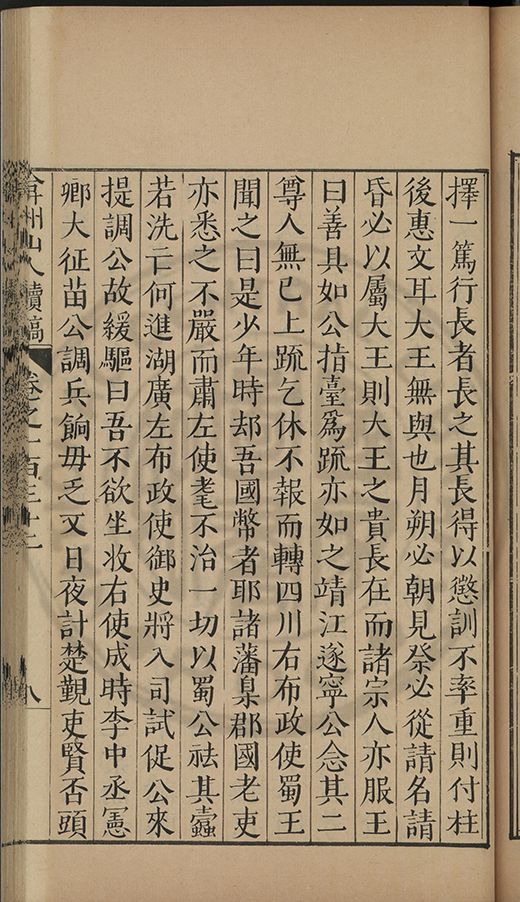 擇一篤行長者長之其長得以懲訓不率重則付柱
後惠文耳大王無與也月朔必朝見祭必從請名請
昏必以屬大王則大王之貴長在而諸宗人亦服王
曰善具如公指臺爲疏亦如之靖江遂寧公念其二
尊人無已上疏乞休不報而轉四川右布政使蜀王
聞之曰是少年時却吾國幣者耶諸藩臬郡國老吏
亦悉之不嚴而肅左使耄不治一切以蜀公祛其蠹
若洗亡何進湖廣左布政使御史將入司試促公來
提調公故緩驅曰吾不欲坐收右使成時李中丞憲
卿大征苗公調兵餉毋乏又日夜計楚覲吏賢否頭
弇州山人續稿 卷之一百三十二 八